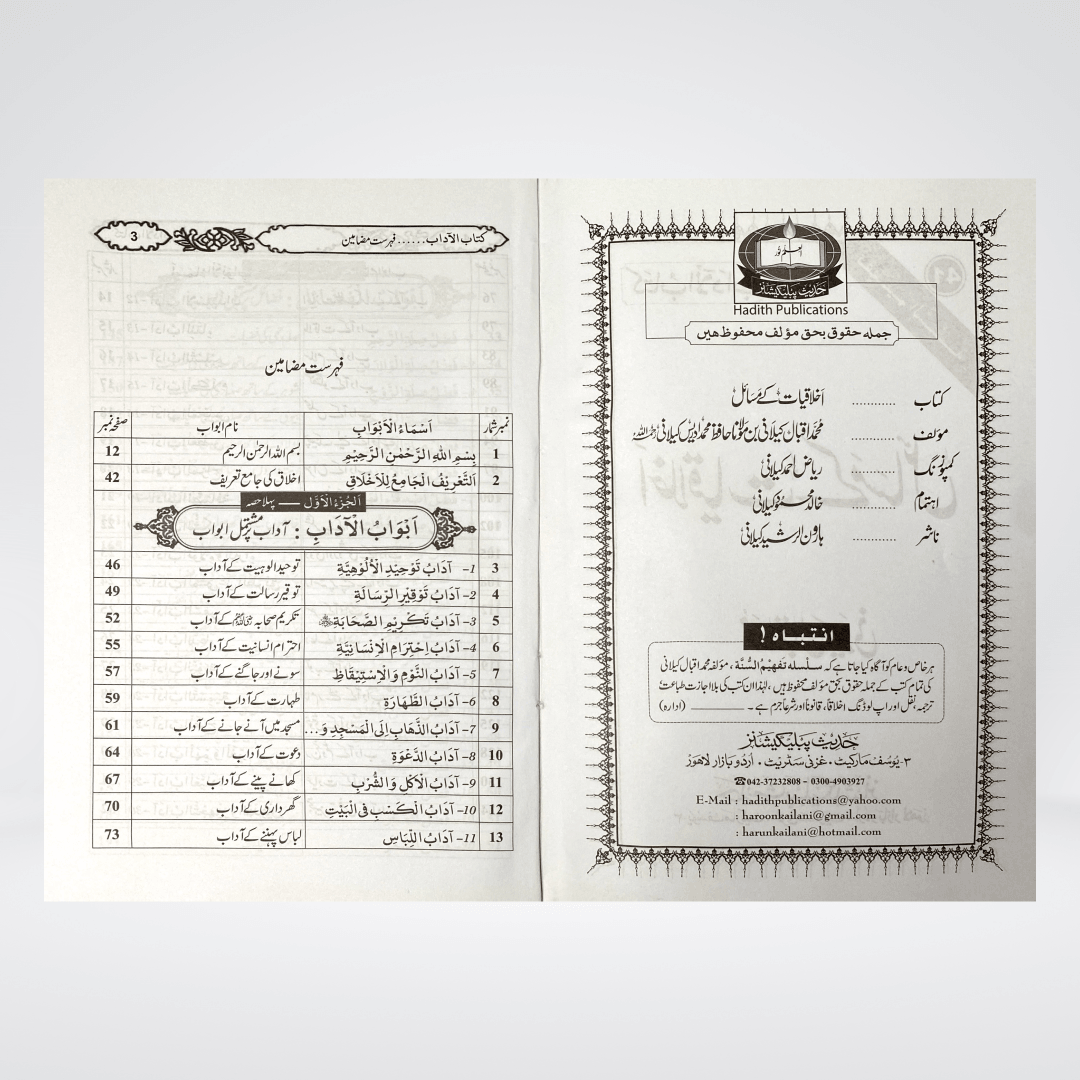 العلم نور
حدیث پبلیکیشنز
Hadith Publications
جملہ حقوق بحق مؤلف محفوظ ہیں
کتاب ............ اخلاقیات کے مسائل
مؤلف ............ محمد اقبال کیلانی بن مولانا حافظ محمد ادریس کیلانی رحمہ اللہ
کمپوزنگ ............ ریاض احمد کیلانی
اہتمام ............ خالد محمود کیلانی
ناشر ............ ہارون الرشید کیلانی
انتباہ !
ہر خاص و عام کو آگاہ کیا جاتا ہے کہ سلسلہ تفہیم السنۃ ، مؤلفہ محمد اقبال کیلانی
کی تمام کتب کے جملہ حقوق بحق مؤلف محفوظ ہیں ، لہٰذا ان کتب کی بلا اجازت طباعت
ترجمہ، نقل اور اپ لوڈنگ اخلاقاً، قانوناً اور شرعاً جرم ہے ۔ ــــــــــــ (ادارہ)
حدیث پبلیکیشنز
۲- یوسف مارکیٹ، غزنی سٹریٹ، اردو بازار لاہور
☎042-37232808 - 0300-4903927
E-Mail : hadithpublications@yahoo.com
: haroonkailani@gmail.com
: harunkailani@hotmail.com
کتاب الآداب......فہرست مضامین 3
فہرست مضامین
نمبر شمار اَسْمَاءُ الْاَبْوَابِ نام ابواب صفحہ نمبر
1 بِسْمِ اللّٰهِ الرَّحْمٰنِ الرَّحِيْمِ بسم اللہ الرحمٰن الرحیم 12
2 اَلتَّعْرِيْفُ الْجَامِعُ لِلْاَخْلَاقِ اخلاق کی جامع تعریف 42
اَلْجُزْءُ الْاَوَّل — پہلا حصہ
اَبْوَابُ الْآدَابِ : آداب پر مشتمل ابواب
3 1- آدَابُ تَوْحِيْدِ الْاُلُوْهِيَّةِ توحید الوہیت کے آداب 46
4 2- آدَابُ تَوْقِيْرِ الرِّسَالَةِ توقیر رسالت کے آداب 49
5 3- آدَابُ تَكْرِيْمِ الصَّحَابَةِ ﷢ تکریم صحابہ رضی اللہ عنہم کے آداب 52
6 4- آدَابُ اِحْتِرَامِ الْاِنْسَانِيَّةِ احترام انسانیت کے آداب 55
7 5- آدَابُ النَّوْمِ وَالْاِسْتِيْقَاظِ سونے اور جاگنے کے آداب 57
8 6- آدَابُ الطَّهَارَةِ طہارت کے آداب 59
9 7- آدَابُ الذَّهَابِ اِلَى الْمَسْجِدِ وَ... مسجد میں آنے جانے کے آداب 61
10 8- آدَابُ الدَّعْوَةِ دعوت کے آداب 64
11 9- آدَابُ الْاَكْلِ وَالشُّرْبِ کھانے پینے کے آداب 67
12 10- آدَابُ الْكَسْبِ فِى الْبَيْتِ گھر داری کے آداب 70
13 11- آدَابُ اللِّبَاسِ لباس پہننے کے آداب 73